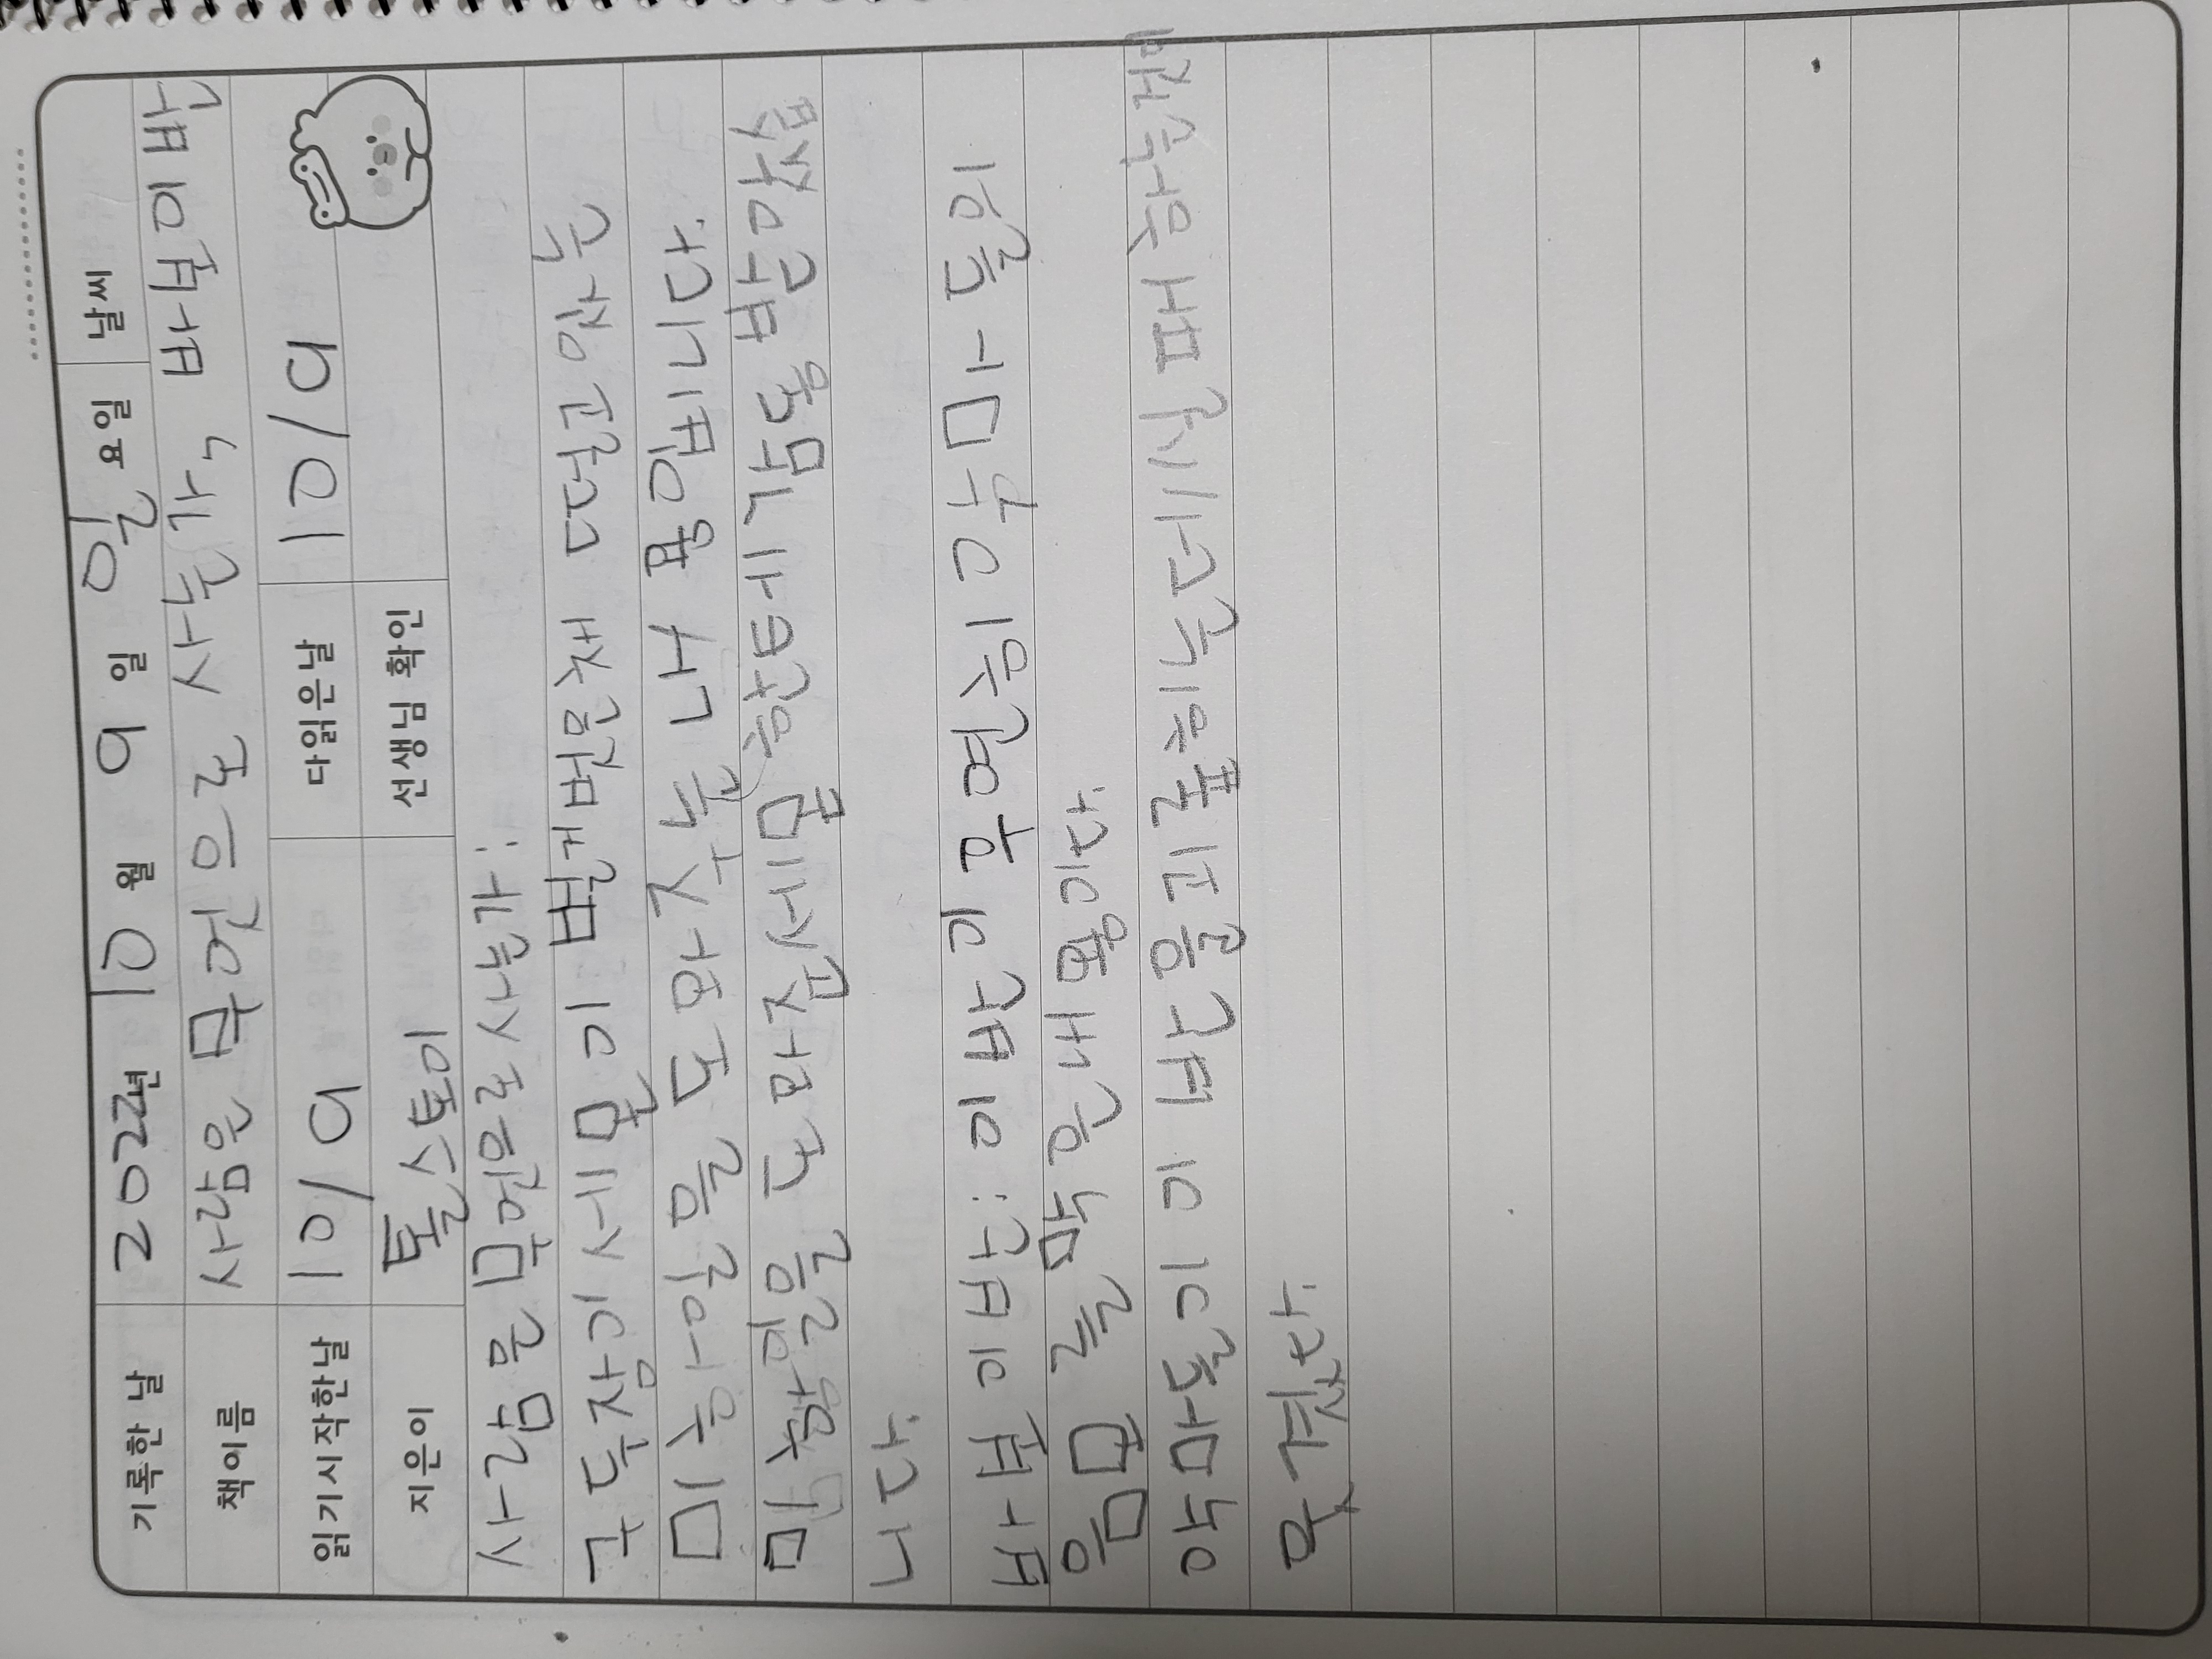 기록한 날 2022년 10월 9일 일요일 날씨
책이름 사람은 무엇으로 사는가, 바보이반
읽기시작한날 10/9 다읽은날 10/9
지은이 톨스토이 선생님 확인
사람은 무엇으로 사는가:
구두장이 세몬이 벌게벗은채 떨고 있는
미하일을 도와주는 내용입니다.
도와준세몬한테 감동 받았습
니다.
바보이반: 이반이 우연히 악마들의
음모를 막은내용이다.
악마들이 이반을괴롶히는데 실패하는것이
웃겼다.